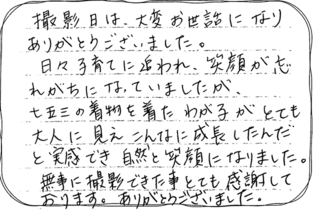 撮影日は、大変お世話になり
ありがとうございました。
日々子育てに追われ、笑顔が忘
れがちになっていましたが、
七五三の着物を着たわが子がとても
大人に見えこんなに成長したんだ
と実感でき自然と笑顔になりました。
無事に撮影できた事とても感謝して
おります。ありがとうございました。